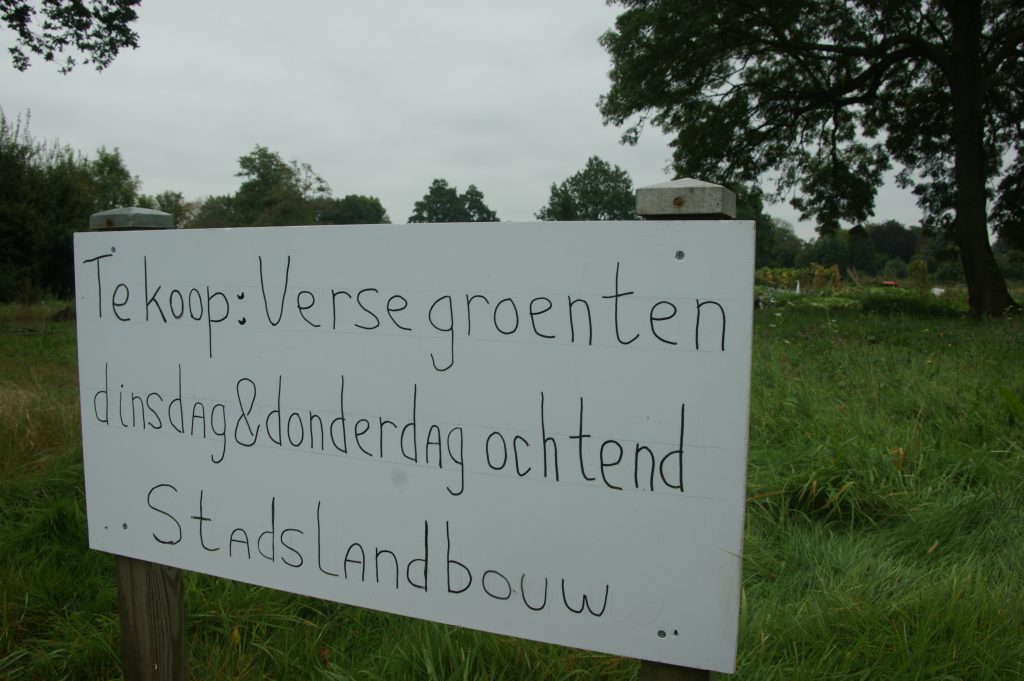 Te koop: Verse groenten
dinsdag & donderdag ochtend
Stadslandbouw